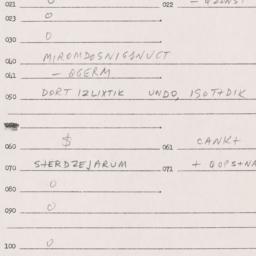 021 0 022
023 0
030 0
040 MIROMDOSNIGANUCT
041 – QGERM
050 DORT IZLIXTIK UNDO, ISOT+DIK
060 $ 061 CANK+
070 S+ERDZEJARUM 071 + QOPS+NA
080 0
090 0
100 0